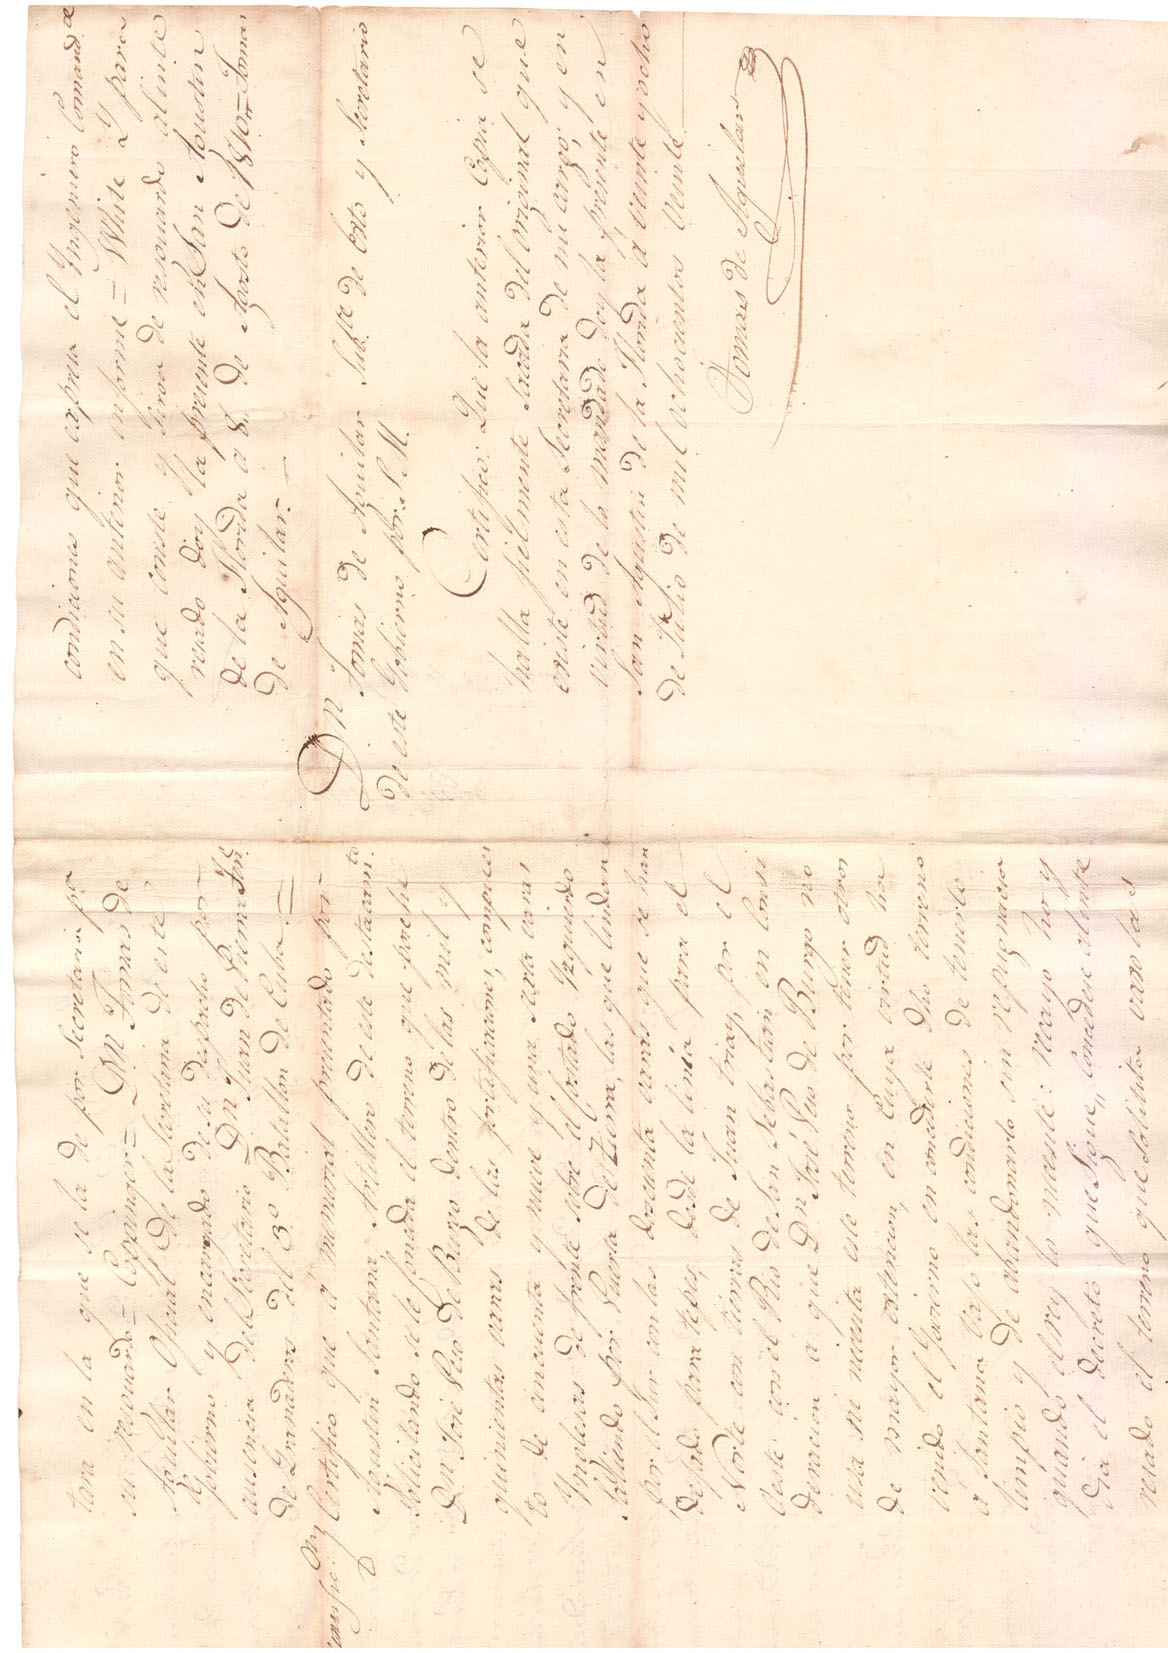 tara en la que se la de por Secretaria pª
su resguardo = Coppinger = Dn. Tomas de
Aguilar Oficial de la Secretaria de este
Gobierno y encargado de su despacho por
ausencia del Secretario Dn Juan de Pierra Ten.te
de Granaderos del 3º Batallon de Cuba =
Certifico que á memorial presentado por
Agustin Santana Artillero de este destacam.to
solicitando se le conceda el terreno que poehe
Dn José Pio de Burgo dentro de las mil y
quinientas varas de las fortificaciones, compues
to de cincuenta y nueve y una sexta varas
Ynglesas de frente sobre el costado Yzquierdo
saliendo por Puerta de Tierra, las que lindan
por el Sur con las doscienta varas que se han
dejado para tepes, desde la linea para el
Norte con tierras de Juan triay, por el
Oeste con el Rio de San Sebastian en consi
deracion á que Dn José Pio de Burgo no
usa ni necesita este terreno por tener otros
de mayor extencion, en cuya virtud ha
venido el Govierno en concederle dho terreno
á Santana vajo las condiciones de tenerlo
limpio y de abandonarlo sin repugnacia
quando el rey lo necesite: recayo hoy
dia el decreto que sigue, Concedese alinte
resado el terreno que solicita vajo las
condiciones que expresa el Yngeniero Comand.te
en su anterior informe = White = Y para
que conste y sirva de resguardo alinte
resado doy la presente en San Agustin
de la Florida a 8. de Agosto de 1810 = Tomas
de Aguilar. =
Dn Tomas de Aguilar Sub.te de Exto y Secretario
de este Gobierno por S. M.
Certifico: Que la anterior Copia se
halla fielmente sacada del original que
existe en esta Secretaria de mi cargo, y en
virtud de lo mandado doy la presente en
San Agustin de la Florida á veinte y ocho
de Julio de mil ochocientos veinte
Tomas de Aguilar